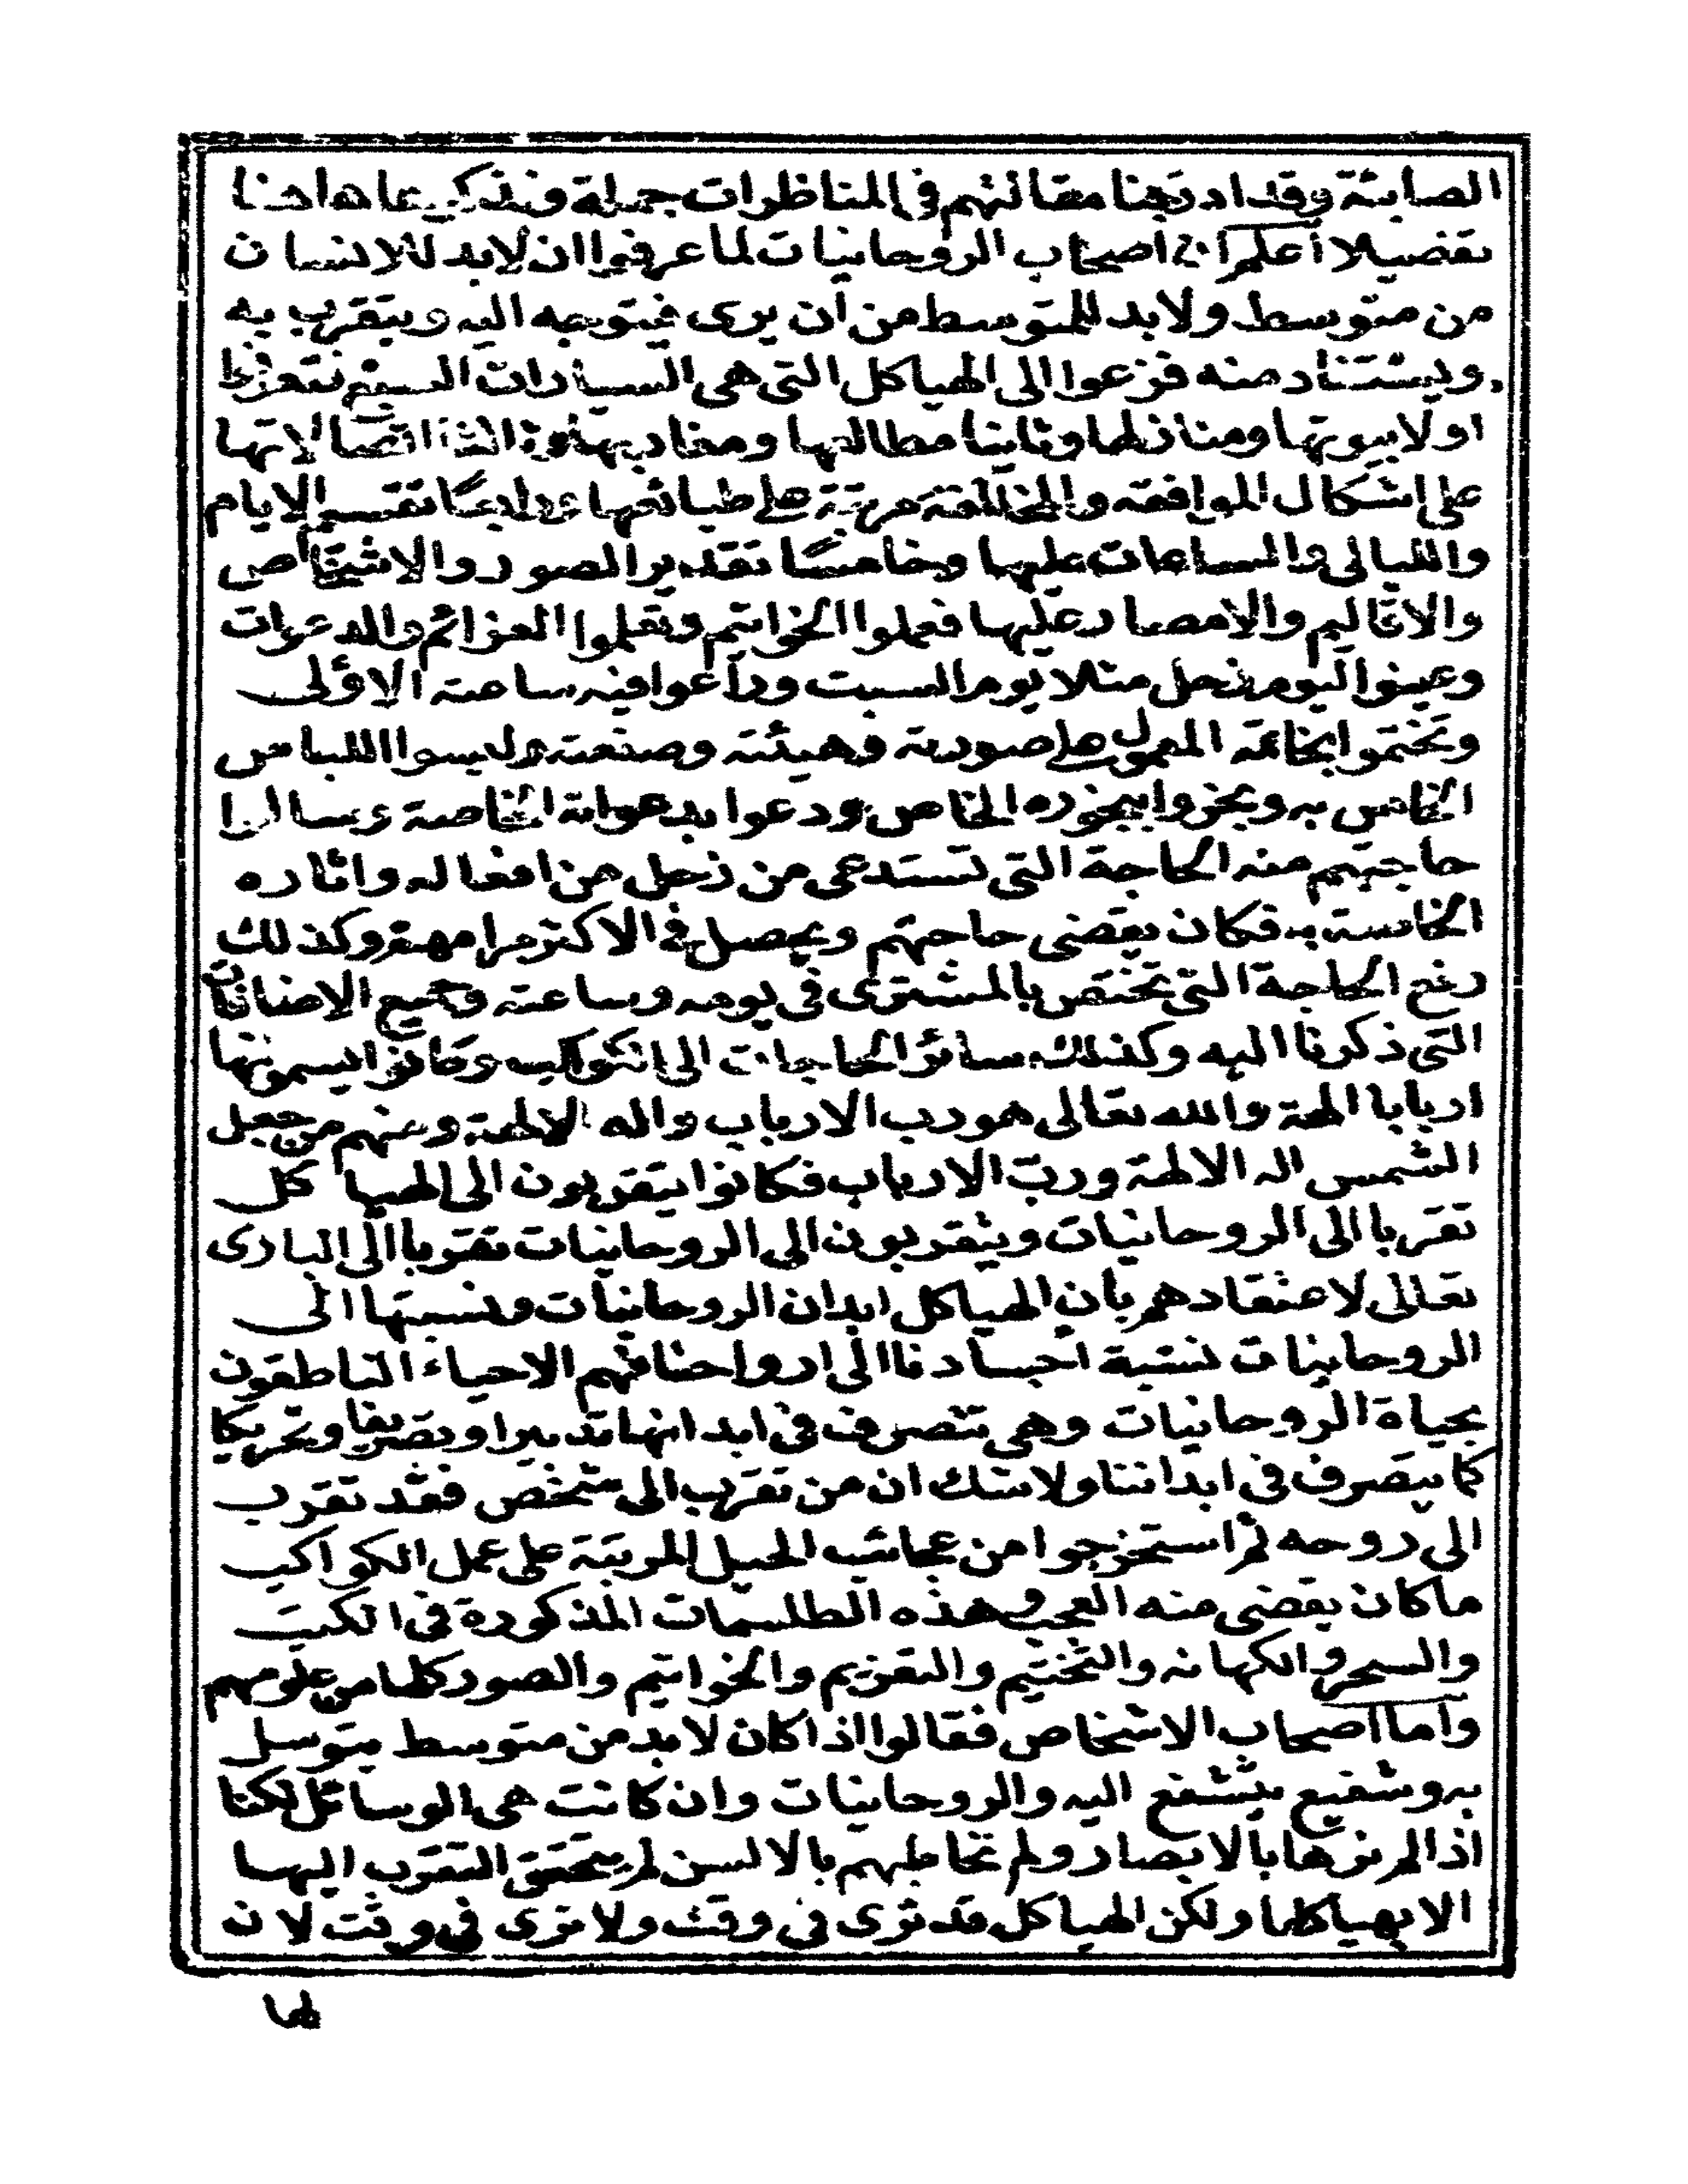 الصابئة وقد ادرجنا مقالتهم في المناظرات جملة ونذكرها هاهنا
تفضيلا أعلم ان اصحاب الروحانيات لما عرفوا ان لابد للانسان
من متوسط ولابد للمتوسط من ان يرى فيتوجه اليه ويتقرب به
ويستفاد منه فزعوا الى الهياكل التى هى السيارات السبع فتعرفوا
اولا بيوتها ومنازلها وثانيا مطالعها ومغاربها وثالثا اتصالاتها
على اشكال الموافقه والمخالفة مرتبة على طبائعها ورابعا تقسيم الايام
والليالى والساعات عليها وخامسا تقدير الصور والاشخاص
والاقاليم والامصار عليها فعملوا الخواتيم وتعلموا العزائم والدعوات
وعينوا اليوم زحل مثلا يوم السبت وراعوا فيه ساعته الاولى
وتختموا بخاتمه المعمول على صورته وهيئته وصنعته ولبسوا اللباس
الخاص به وبخروا ببخوره الخاص ودعوا بدعواته الخاصة وسالوا
حاجتهم منه الحاجة التى تستدعى من زحل من افعاله واثاره
الخاسة به فكان يقضى حاجتهم ويحصل في الاكثر مرامهم وكذلك
رفع الحاجة التى تختص بالمشترى فى يومه وساعته وجميع الاضافات
التى ذكرنا اليه وكذلك سائر الحاجات الى الكواكب وكانوا يسمونها
اربابا الهة والله تعالى هو رب الارباب واله الالهة ومنهم من جعل
الشمس اله الالهة ورب الارباب فكانوا يتقربون الى الهياكل
تقربا الى الروحانيات ويتقربون الى الروحانيات تقربا الى البارى
تعالى لاعتقادهم بان الهياكل ابدان الروحانيات ونسبتها الى
الروحانيات نسبة اجسادنا الى ارواحنا فهم الاحياء الناطقون
بحياة الروحانيات وهى تتصرف فى ابدانها تدبيرا وتصريفا وتحريكا
كما يتصرف فى ابداننا ولا شك ان من تقرب الى شخص فقد تقرب
الى روحه ثم استخرجوا من عجائب الحيل المرتبة على عمل الكواكب
ما كان يقضى منه العجب وهذه الطلسمات المذكورة فى الكتب
والسحر والكهانه والتختيم والتعزيم والخواتيم والصور كلها من علومهم
واما اصحاب الاشخاص فقالوا اذا كان لابد من متوسط يتوسل
به وشفيع يتشفع اليه والروحانيات وان كانت هى الوسائل لكنا
اذا لم نرها بالابصار ولم نخاطبهم بالالسن لم يتحقق التقرب اليها
الا بهياكلها ولكن الهياكل قد ترى فى وقت ولا ترى فى وقت لان
لها